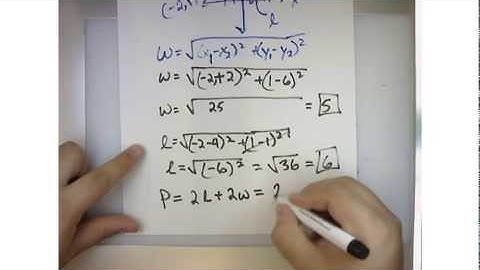 (-2,
l
w = √(x₁-x₂)² + (y₁-y₂)²
w = √(-2+2)² + (1-6)²
w = √25 = 5
l = √(-2-4)² + (1-1)²
l = √(-6)² = √36 = 6
P = 2l + 2w = 2